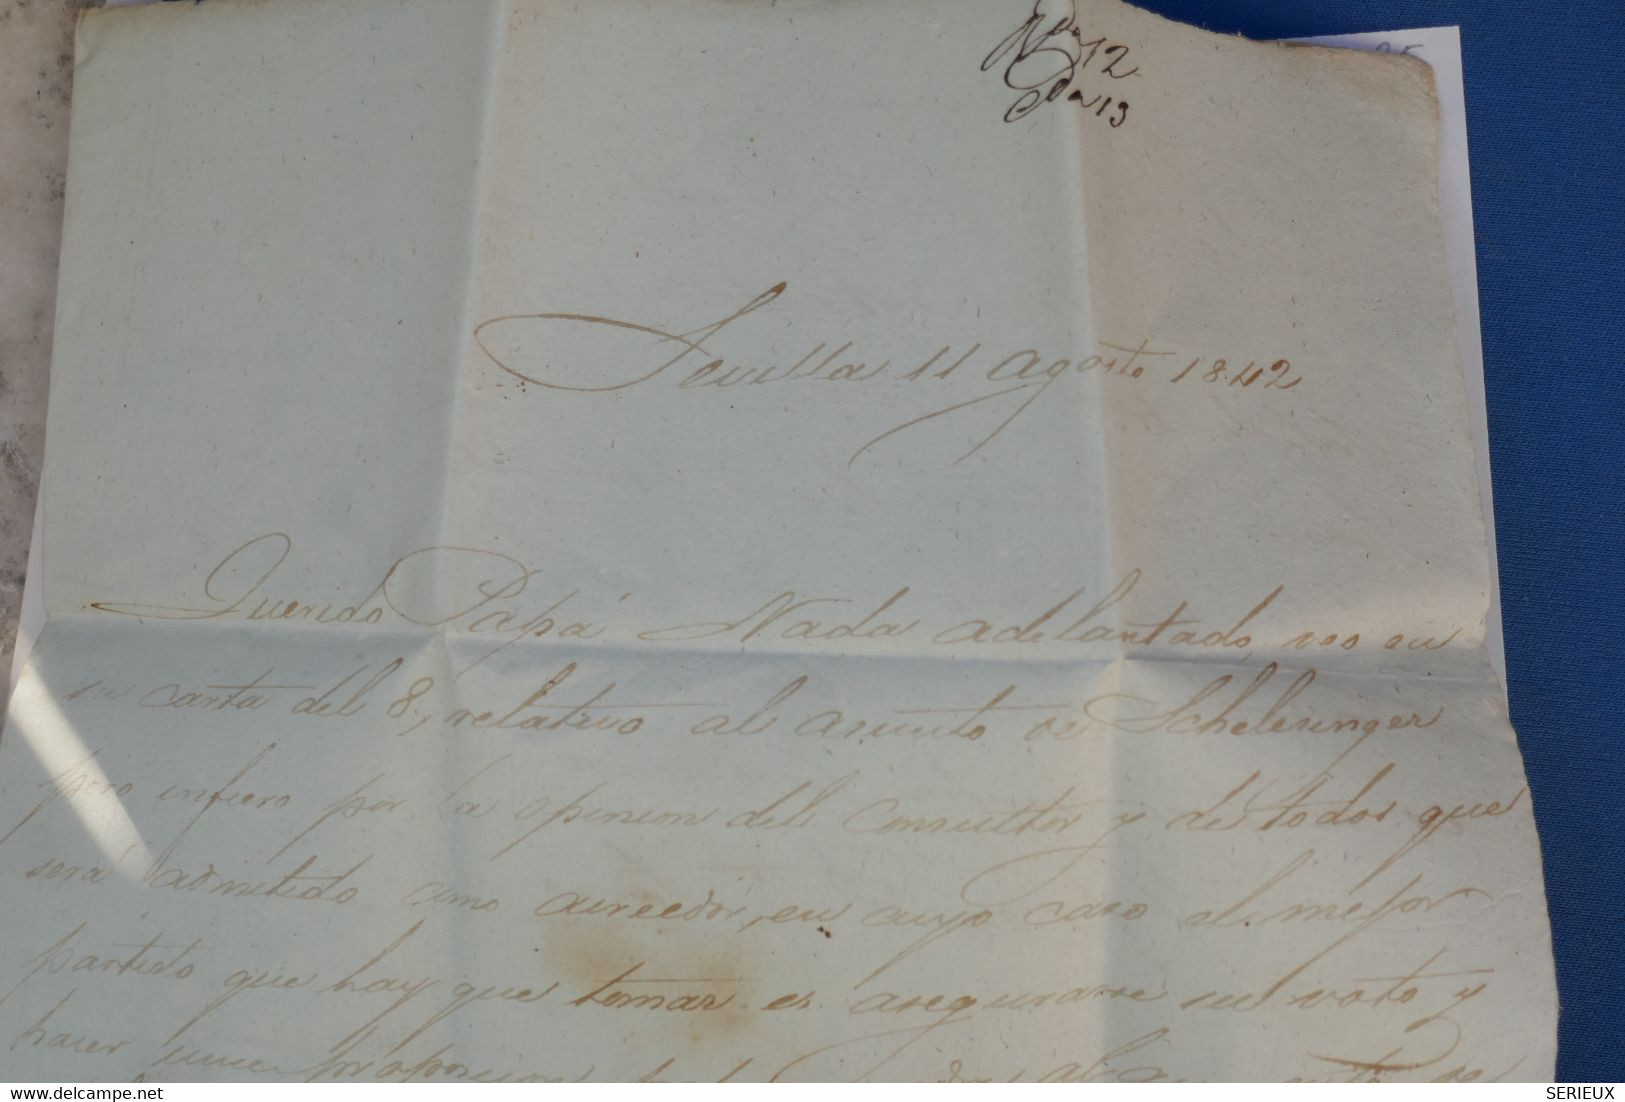 12
13
Sevilla 11 agosto 1842
Querido Papá Nada adelantado, veo en
su carta del 8, relativo al asunto de Schelesinger
pero infiero por la opinion del Consultor y de todos que
será admitido como acreedor, en cuyo caso el mejor
partido que hay que tomar es asegurarse su voto y
hacer una proposicion
SERIEUX